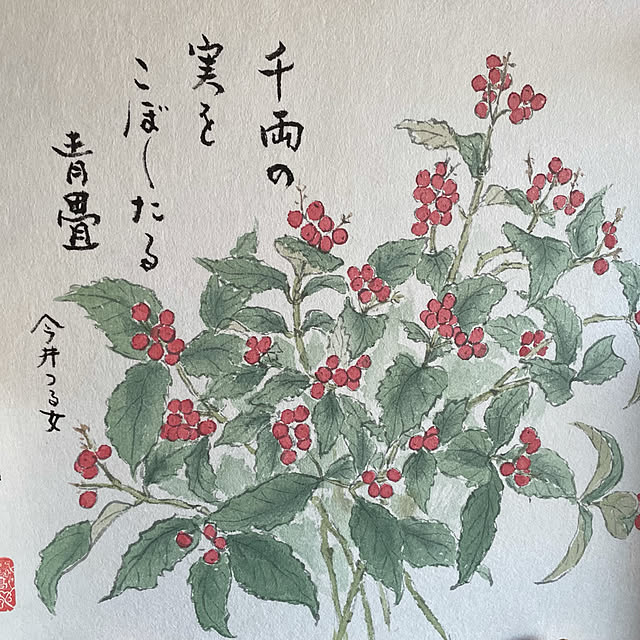 千両の
実を
こぼしたる
青畳
今井つる女